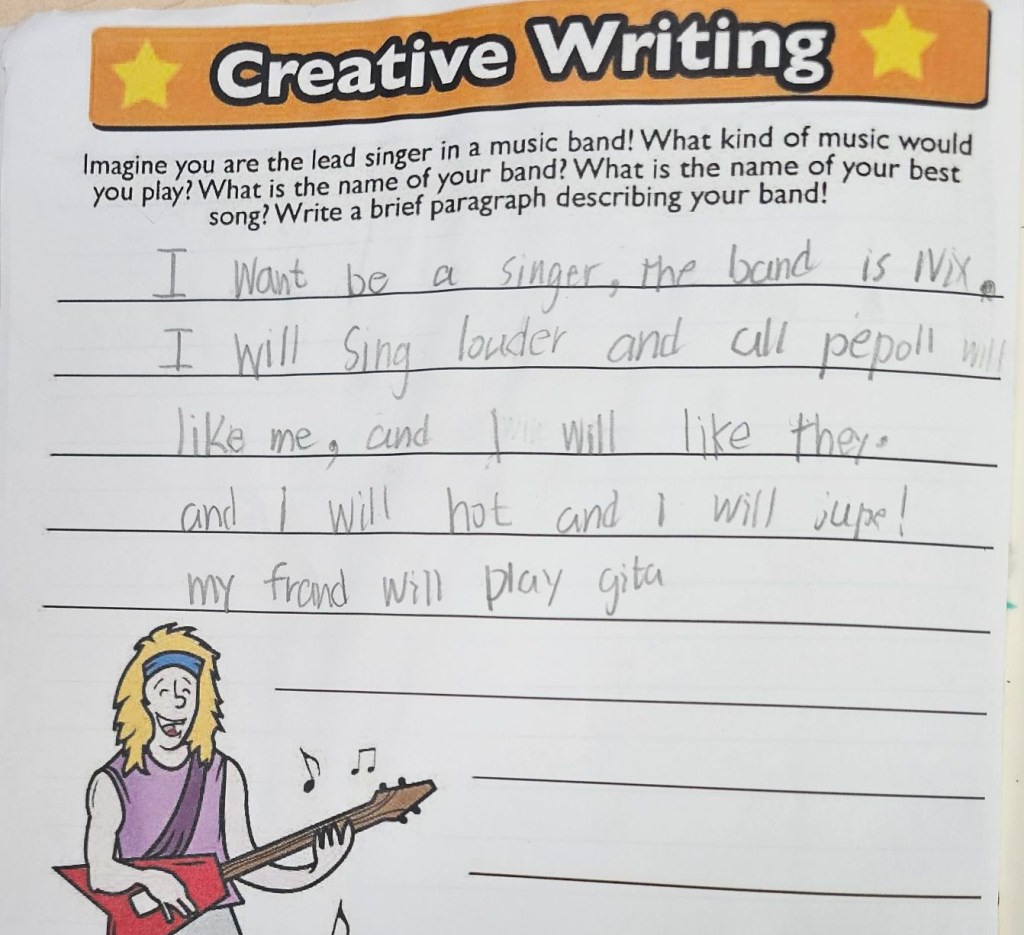 Creative Writing
Imagine you are the lead singer in a music band! What kind of music would
you play? What is the name of your band? What is the name of your best
song? Write a brief paragraph describing your band!
I want be a singer, the band is NiX.
I will Sing louder and all pepoll will
like me, and I will like they.
and I will hot and I will jupe!
my frand will play gita